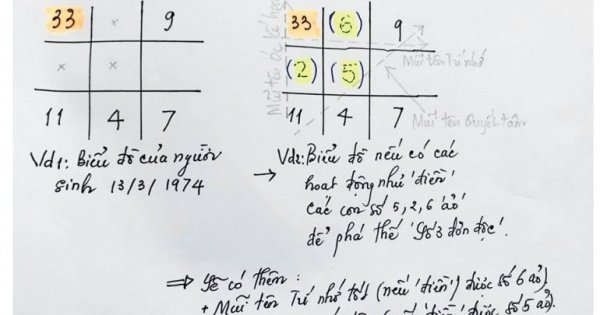 33 × 9
× ×
11 4 7
Vd1: Biểu đồ của người
sinh 13/3/1974
33 (6) 9
(2) (5)
11 4 7
Mũi tên Trí nhớ
Mũi tên Quyết tâm
Mũi tên
Vd2: Biểu đồ nếu có các
→ hoạt động như 'điền'
các con số 5, 2, 6 'ảo'
để phá thế 'Số 3 đơn độc'.
⇒ Sẽ có thêm:
+ Mũi tên Trí nhớ tốt (nếu 'điền') được số 6 ảo)
được số 5 ảo).